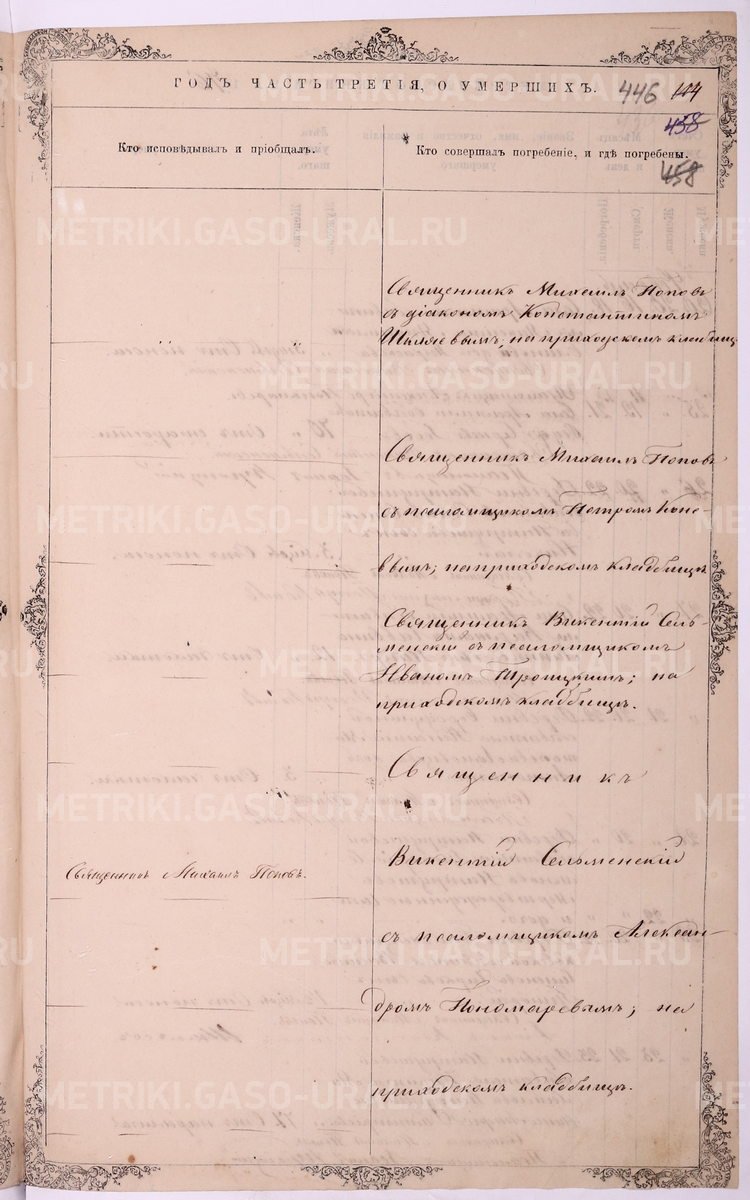 ГОДЪ ЧАСТЬ ТРЕТІЯ, О УМЕРШИХЪ.
446
458
458
Кто исповѣдывалъ и пріобщалъ.
Кто совершалъ погребеніе, и гдѣ погребены.
METRIKI.GASO-URAL.RU
Священникъ Михаилъ Поповъ
съ діакономъ Константиномъ
Шиляевымъ; на приходскомъ кладбищ
Священникъ Михаилъ Поповъ
съ псаломщикомъ Петромъ Коно-
вымъ; на приходскомъ кладбищѣ
Священникъ Викентій Сель-
менскій съ псаломщикомъ
Иваномъ Троицкимъ; на
приходскомъ кладбищѣ.
Священникъ
Священникъ Михаилъ Поповъ.
Викентій Сельменскій
съ псаломщикомъ Алексан-
дромъ Пономаревымъ; на
приходскомъ кладбищѣ.